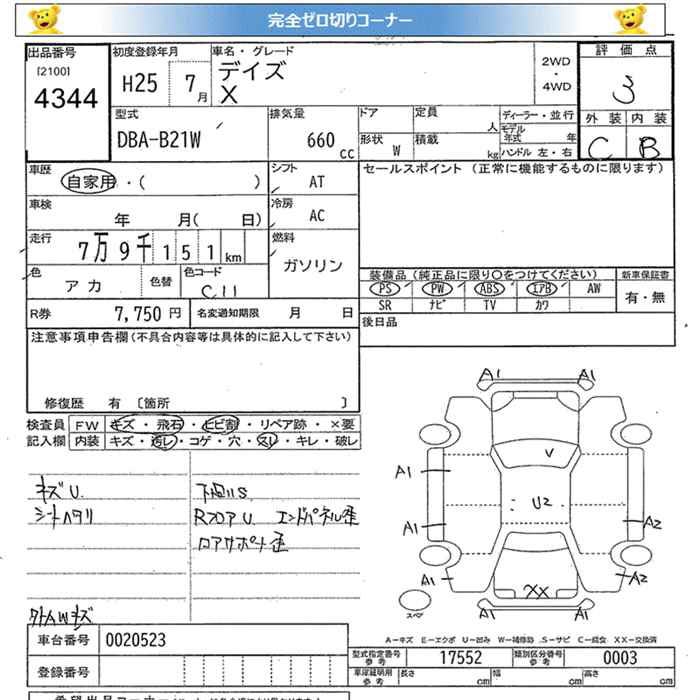 完全ゼロ切りコーナー
出品番号 初度登録年月 車名・グレード 2WD・4WD 評価点
[2100]
4344 H25 7月 デイズ X 3
型式 排気量 ドア 定員 人 ディーラー・並行 外装 内装
DBA-B21W 660cc 形状 W 積載 kg モデル年式 年 ハンドル 左・右 C B
車歴 自家用・( ) シフト AT セールスポイント (正常に機能するものに限ります)
車検 年 月( 日) 冷房 AC
走行 7万9千151km 燃料 ガソリン
色 アカ 色替 色コード C11 装備品 (純正品に限り○をつけてください) 新車保証書
PS PW ABS エアB AW 有・無
SR ナビ TV カワ
R券 7,750円 名変通知期限 月 日 後日品
注意事項申告欄(不具合内容等は具体的に記入して下さい)
修復歴 有 〔箇所 〕
検査員 FW キズ・飛石・ヒビ割・リペア跡・×要
記入欄 内装 キズ・汚レ・コゲ・穴・スリ・キレ・破レ
キズU 下廻りS
シートヘタリ RフロアU エンドパネル歪
ロアサポート歪
クォームWキズ
A1 A1
V
A1 U2
A1 A2
A1 XX A2
スペア A1 A1
A-キズ E-エクボ U-凹み W-補修跡 S-サビ C-腐食 XX-交換済
車台番号 0020523
型式指定番号 参考 17552 類別区分番号 参考 0003
登録番号 車庫証明用 参考 長さ cm 幅 cm 高さ cm